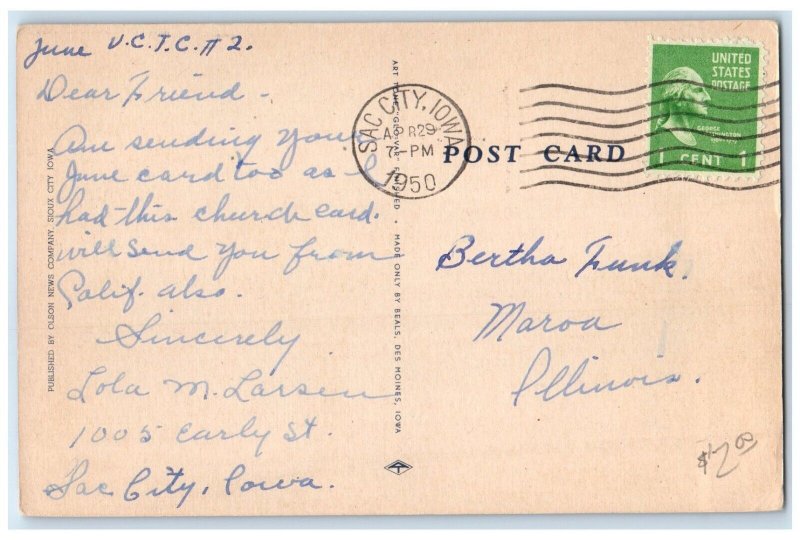 June U.C.T.C. #2.
Dear Friend -
Am sending your
June card too as I
had this church card.
will send you from
Calif. also.
Sincerely
Lola M. Larsen
1005 Early St.
Sac City, Iowa.
PUBLISHED BY OLSON NEWS COMPANY, SIOUX CITY IOWA
MADE ONLY BY BEALS, DES MOINES, IOWA
SAC CITY, IOWA
APR 29
7-PM
1950
POST CARD
UNITED
STATES
POSTAGE
GEORGE
WASHINGTON
1 CENT 1
Bertha Funk.
Maroa
Illinois.